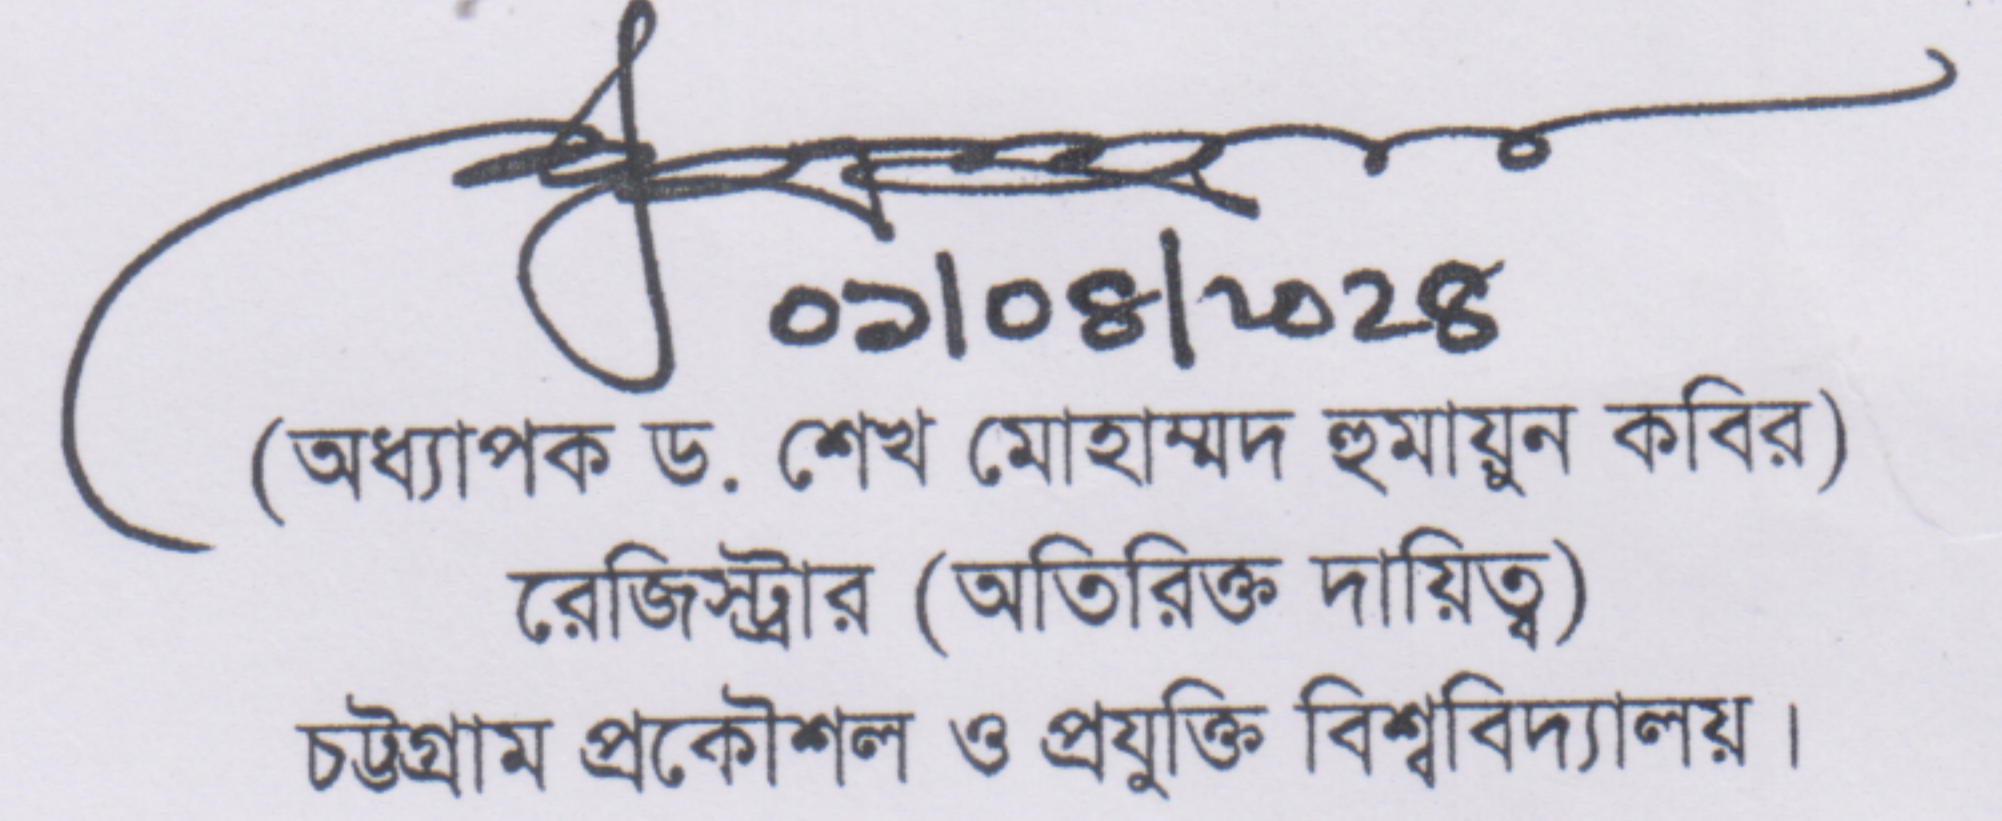 ০৯/০৪/২০২৪
(অধ্যাপক ড. শেখ মোহাম্মদ হুমায়ুন কবির)
রেজিস্ট্রার (অতিরিক্ত দায়িত্ব)
চট্টগ্রাম প্রকৌশল ও প্রযুক্তি বিশ্ববিদ্যালয়।